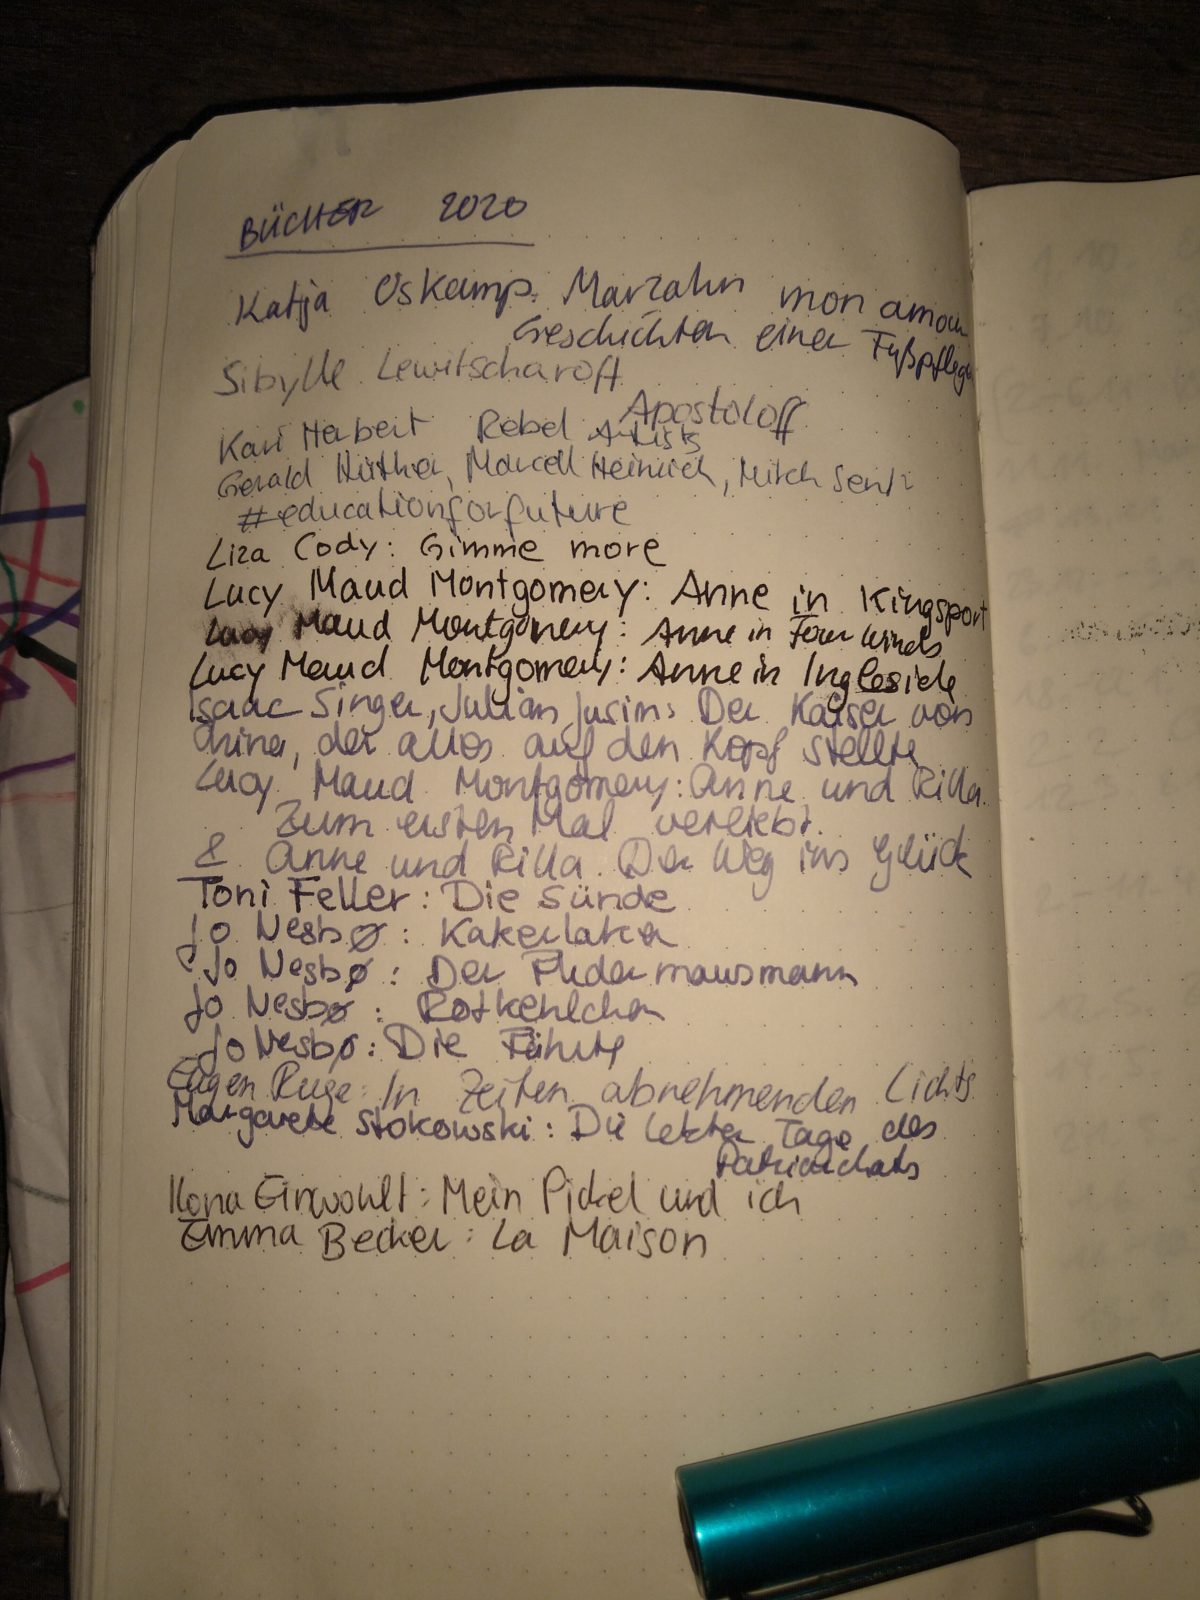 BÜCHER 2020
Katja Oskamp: Marzahn mon amour
Geschichten einer Fußpflege
Sibylle Lewitscharoff
Apostoloff
Kari Herbert Rebel Artists
Gerald Hüther, Marcell Heinrich, Mitch Senf
#educationforfuture
Liza Cody: Gimme more
Lucy Maud Montgomery: Anne in Kingsport
Lucy Maud Montgomery: Anne in Four Winds
Lucy Maud Montgomery: Anne in Ingleside
Isaac Singer, Julian Jusim: Der Kaiser von
China, der alles auf den Kopf stellte
Lucy Maud Montgomery: Anne und Rilla.
Zum ersten Mal verliebt.
& Anne und Rilla. Der Weg ins Glück
Toni Feller: Die Sünde
Jo Nesbø: Kakerlaken
Jo Nesbø: Der Fledermausmann
Jo Nesbø: Rotkehlchen
Jo Nesbø: Die Fährte
Eugen Ruge: In Zeiten abnehmenden Lichts
Margarete Stokowski: Die letzten Tage des
Patriarchats
Ilona Einwohlt: Mein Pickel und ich
Emma Becker: La Maison